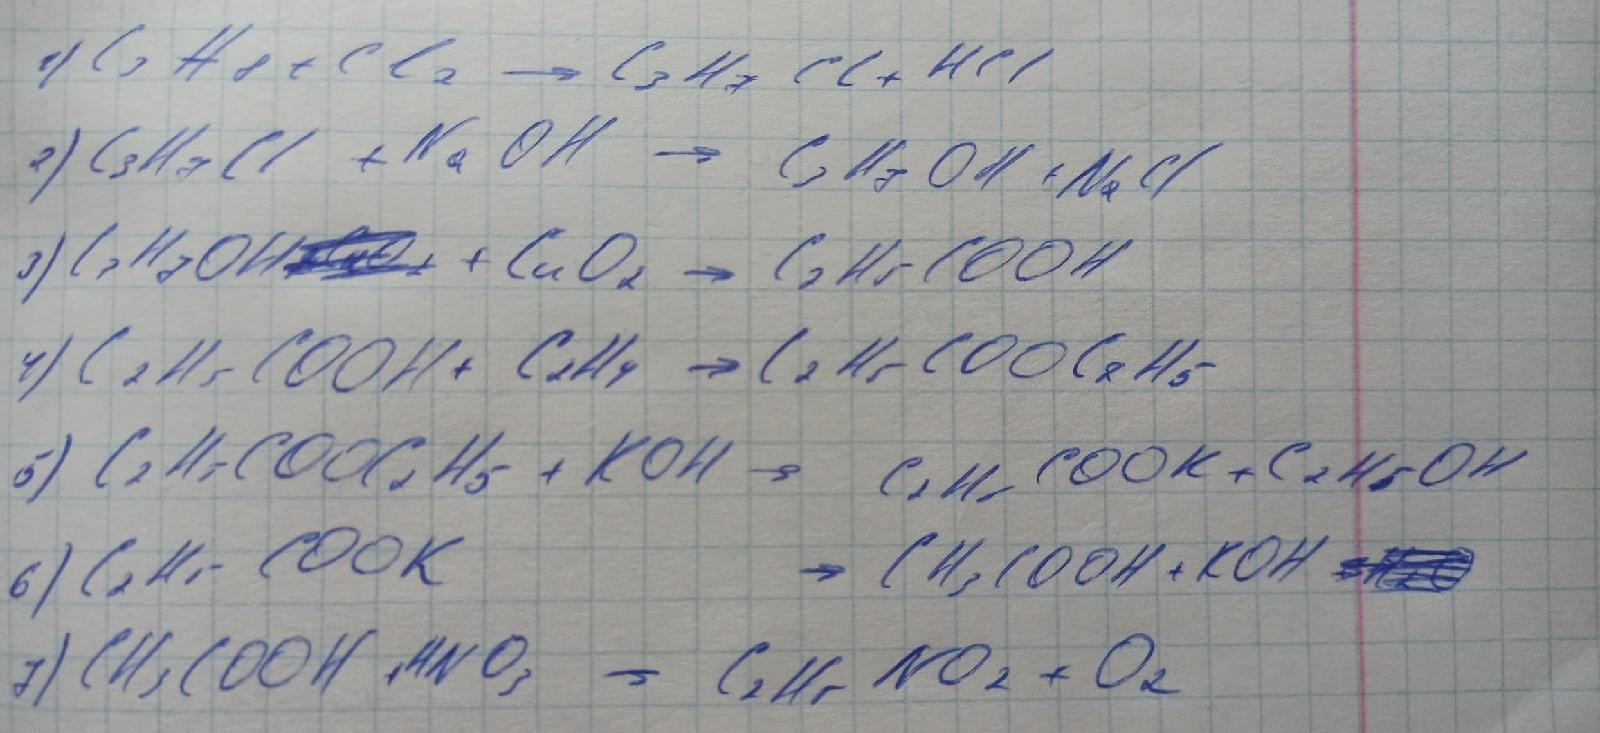 1) C3H8 + Cl2 → C3H7Cl + HCl
2) C3H7Cl + NaOH → C3H7OH + NaCl
3) C3H7OH + CuO2 → C2H5COOH
4) C2H5COOH + C2H4 → C2H5COOC2H5
5) C2H5COOC2H5 + KOH → C2H5COOK + C2H5OH
6) C2H5COOK → CH3COOH + KOH
7) CH3COOH + HNO3 → C2H5NO2 + O2